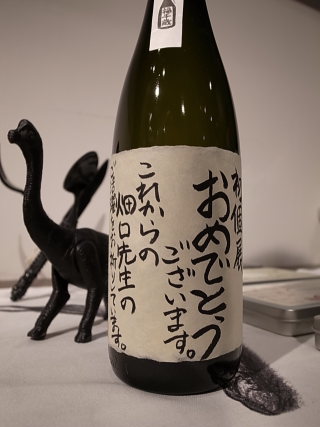 初個展
おめでとう
ございます。
これからの
畑口先生の
ご活躍をお祈りしています。